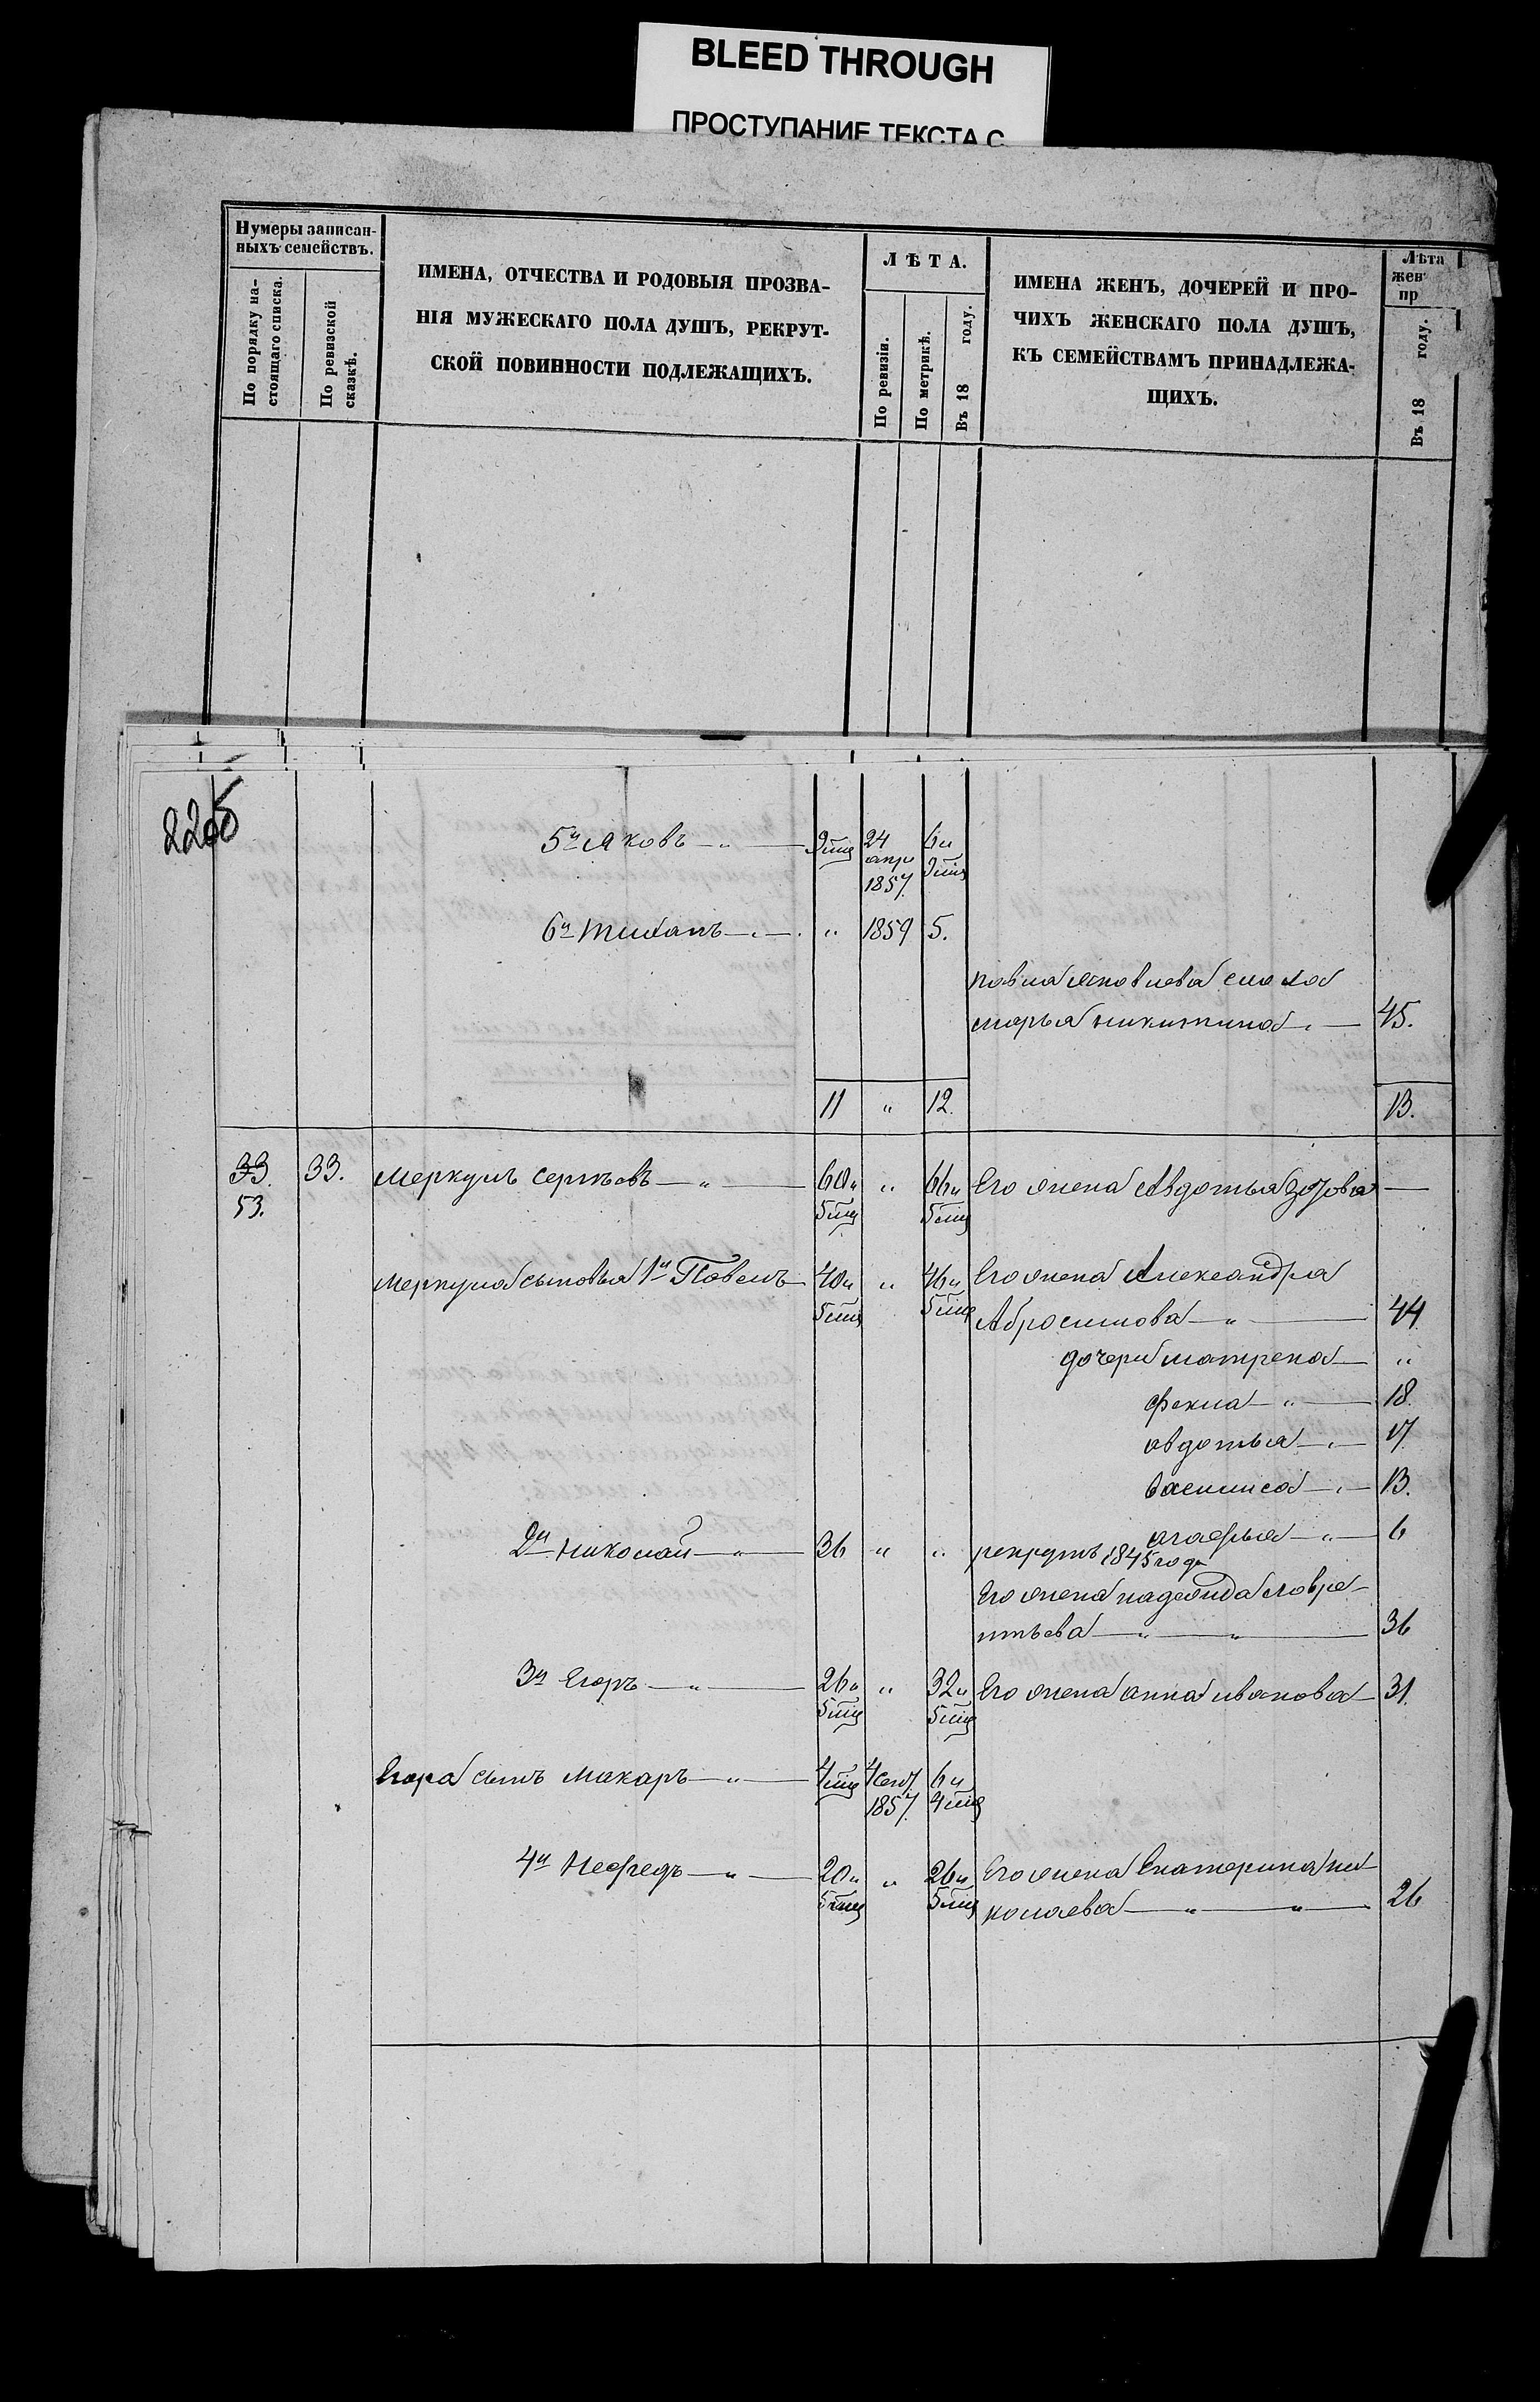 BLEED THROUGH
ПРОСТУПАНИЕ ТЕКСТА С
Нумеры записан-
ныхъ семействъ.
По порядку на-
стоящаго списка.
По ревизской
сказкѣ.
ИМЕНА, ОТЧЕСТВА И РОДОВЫЯ ПРОЗВА-
НІЯ МУЖЕСКАГО ПОЛА ДУШЪ, РЕКРУТ-
СКОЙ ПОВИННОСТИ ПОДЛЕЖАЩИХЪ.
ЛѢТА.
По ревизіи.
По метрикѣ.
Въ 18 году.
ИМЕНА ЖЕНЪ, ДОЧЕРЕЙ И ПРО-
ЧИХЪ ЖЕНСКАГО ПОЛА ДУШЪ,
КЪ СЕМЕЙСТВАМЪ ПРИНАДЛЕЖА-
ЩИХЪ.
Лѣта
жен
пр
Въ 18 году.
5й Яковъ — " — 9 мѣц 24 апр 1857 6 и 9 мѣц
6й — " 1859 5.
Павла Яковлева сноха
марья никитина — 45.
11 " 12. 13.
33. 33. Меркулъ Сергѣевъ — " — 60 и 5 мѣц " 66 и 5 мѣц Его жена Авдотья —
53.
Меркула сыновья 1й Павелъ 40 и 5 мѣц " 46 и 5 мѣц Его жена Александра
Абросимова — " — 44
дочери матрена — "
фекла — " — 18
авдотья — " — 17
василиса — " — 13.
агафья — " — 6
2й николай — " — 36 " " рекрутъ 1845 года
Его жена надежда лавре-
нтьева — " — " — 36
3й Егоръ — " — 26 и 5 мѣц " 32 и 5 мѣц Его жена анна иванова — 31.
Егора сынъ макаръ — " — 4 мѣц 4 сент 1857 6 и 4 мѣц
4й Нефедъ — " — 20 и 5 мѣц " 26 и 5 мѣц Его жена Екатерина ни-
колаева — " — " — 26